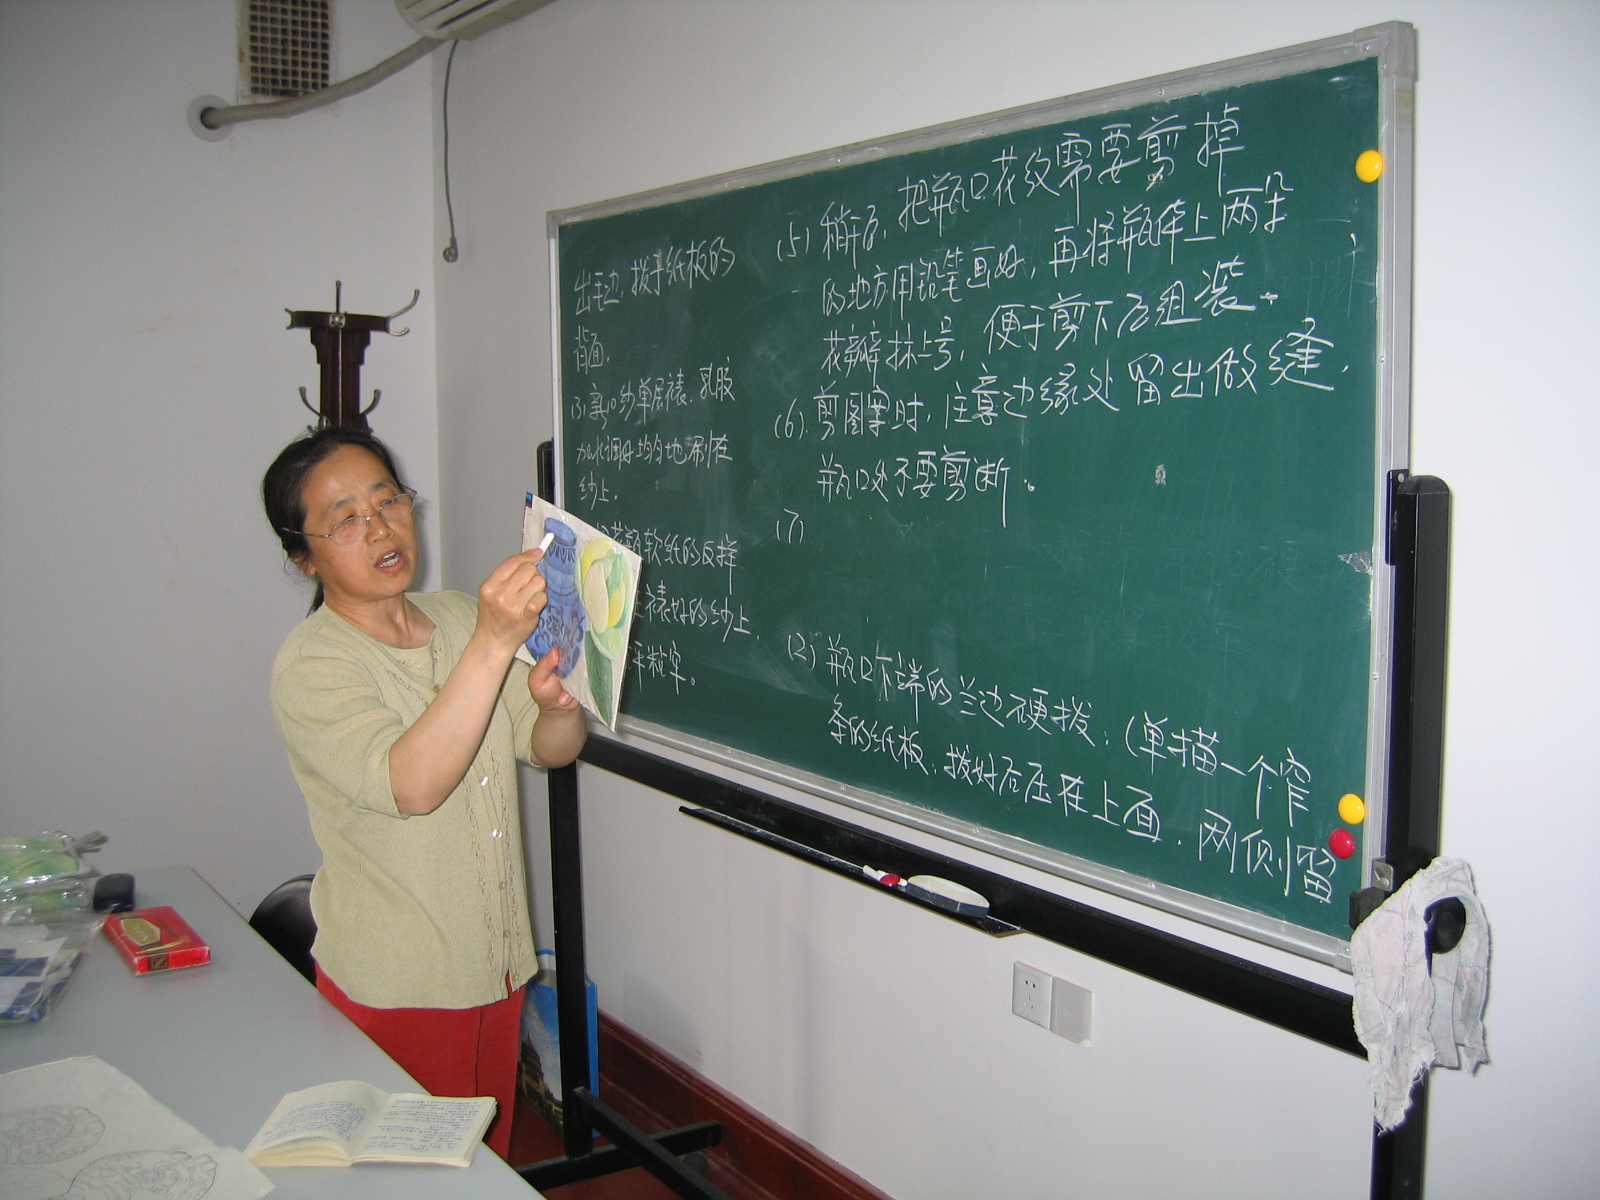 出毛边,拨手纸板的
背面。
纱单层裱,乳胶
加水调好均匀地刷在
纱上。
花瓶软纸的反样
裱好的纱上,
粘牢。
(5) 稍后,把瓶口花纹需要剪掉
的地方用铅笔画好,再将瓶体上两朵
花瓣抹上号,便于剪下后组装。
(6) 剪图案时,注意边缘处留出做缝,
瓶口处不要剪断。
(7)
(2) 瓶口下端的兰边硬拨:(单描一个窄
条的纸板,拨好后压在上面,两侧留